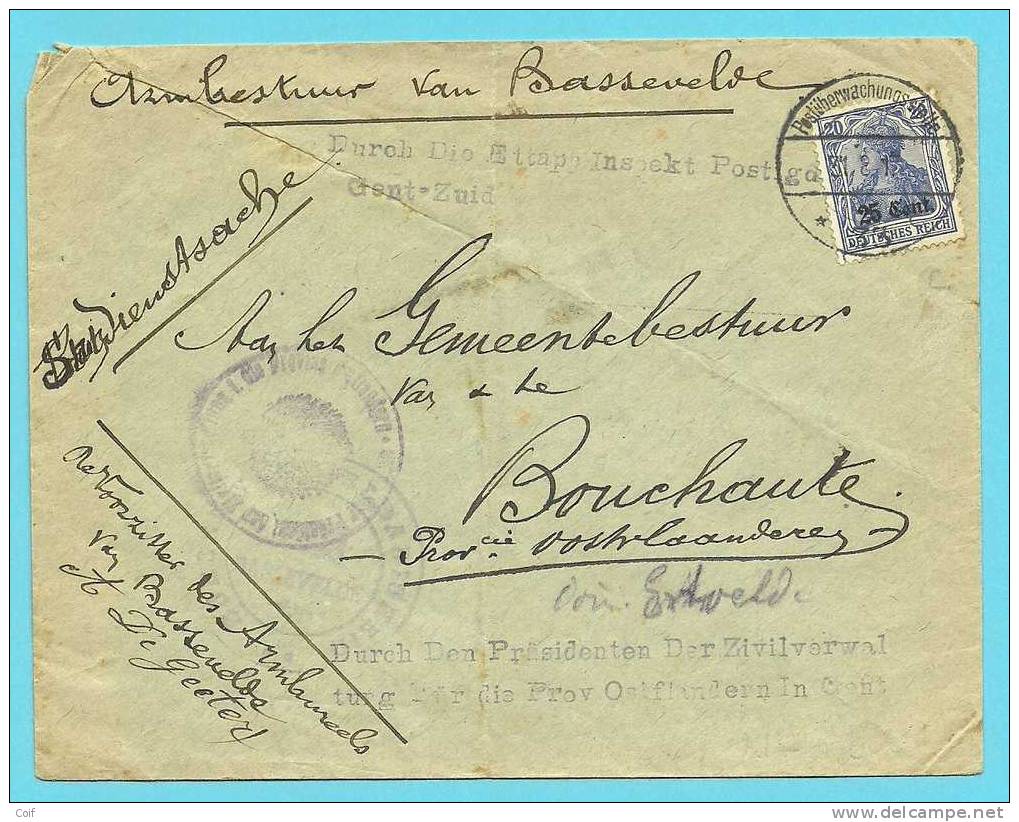 Armbestuur van Bassevelde
Postüberwachungs
20
25 Cent
DEUTSCHES REICH
Durch Die Ettapp Inspekt Postigd
Gent-Zuid
Dienstsache
Aan het Gemeentebestuur
van & te
Bouchaute.
Prov cie Oostvlaanderen
Ertvelde
Durch Den Präsidenten Der Zivilverwal
tung Für die Prov Ostflandern In Gent
de Voorzitter des Armbureels
van Bassevelde
A De Geeter
Coif
www.delcampe.net